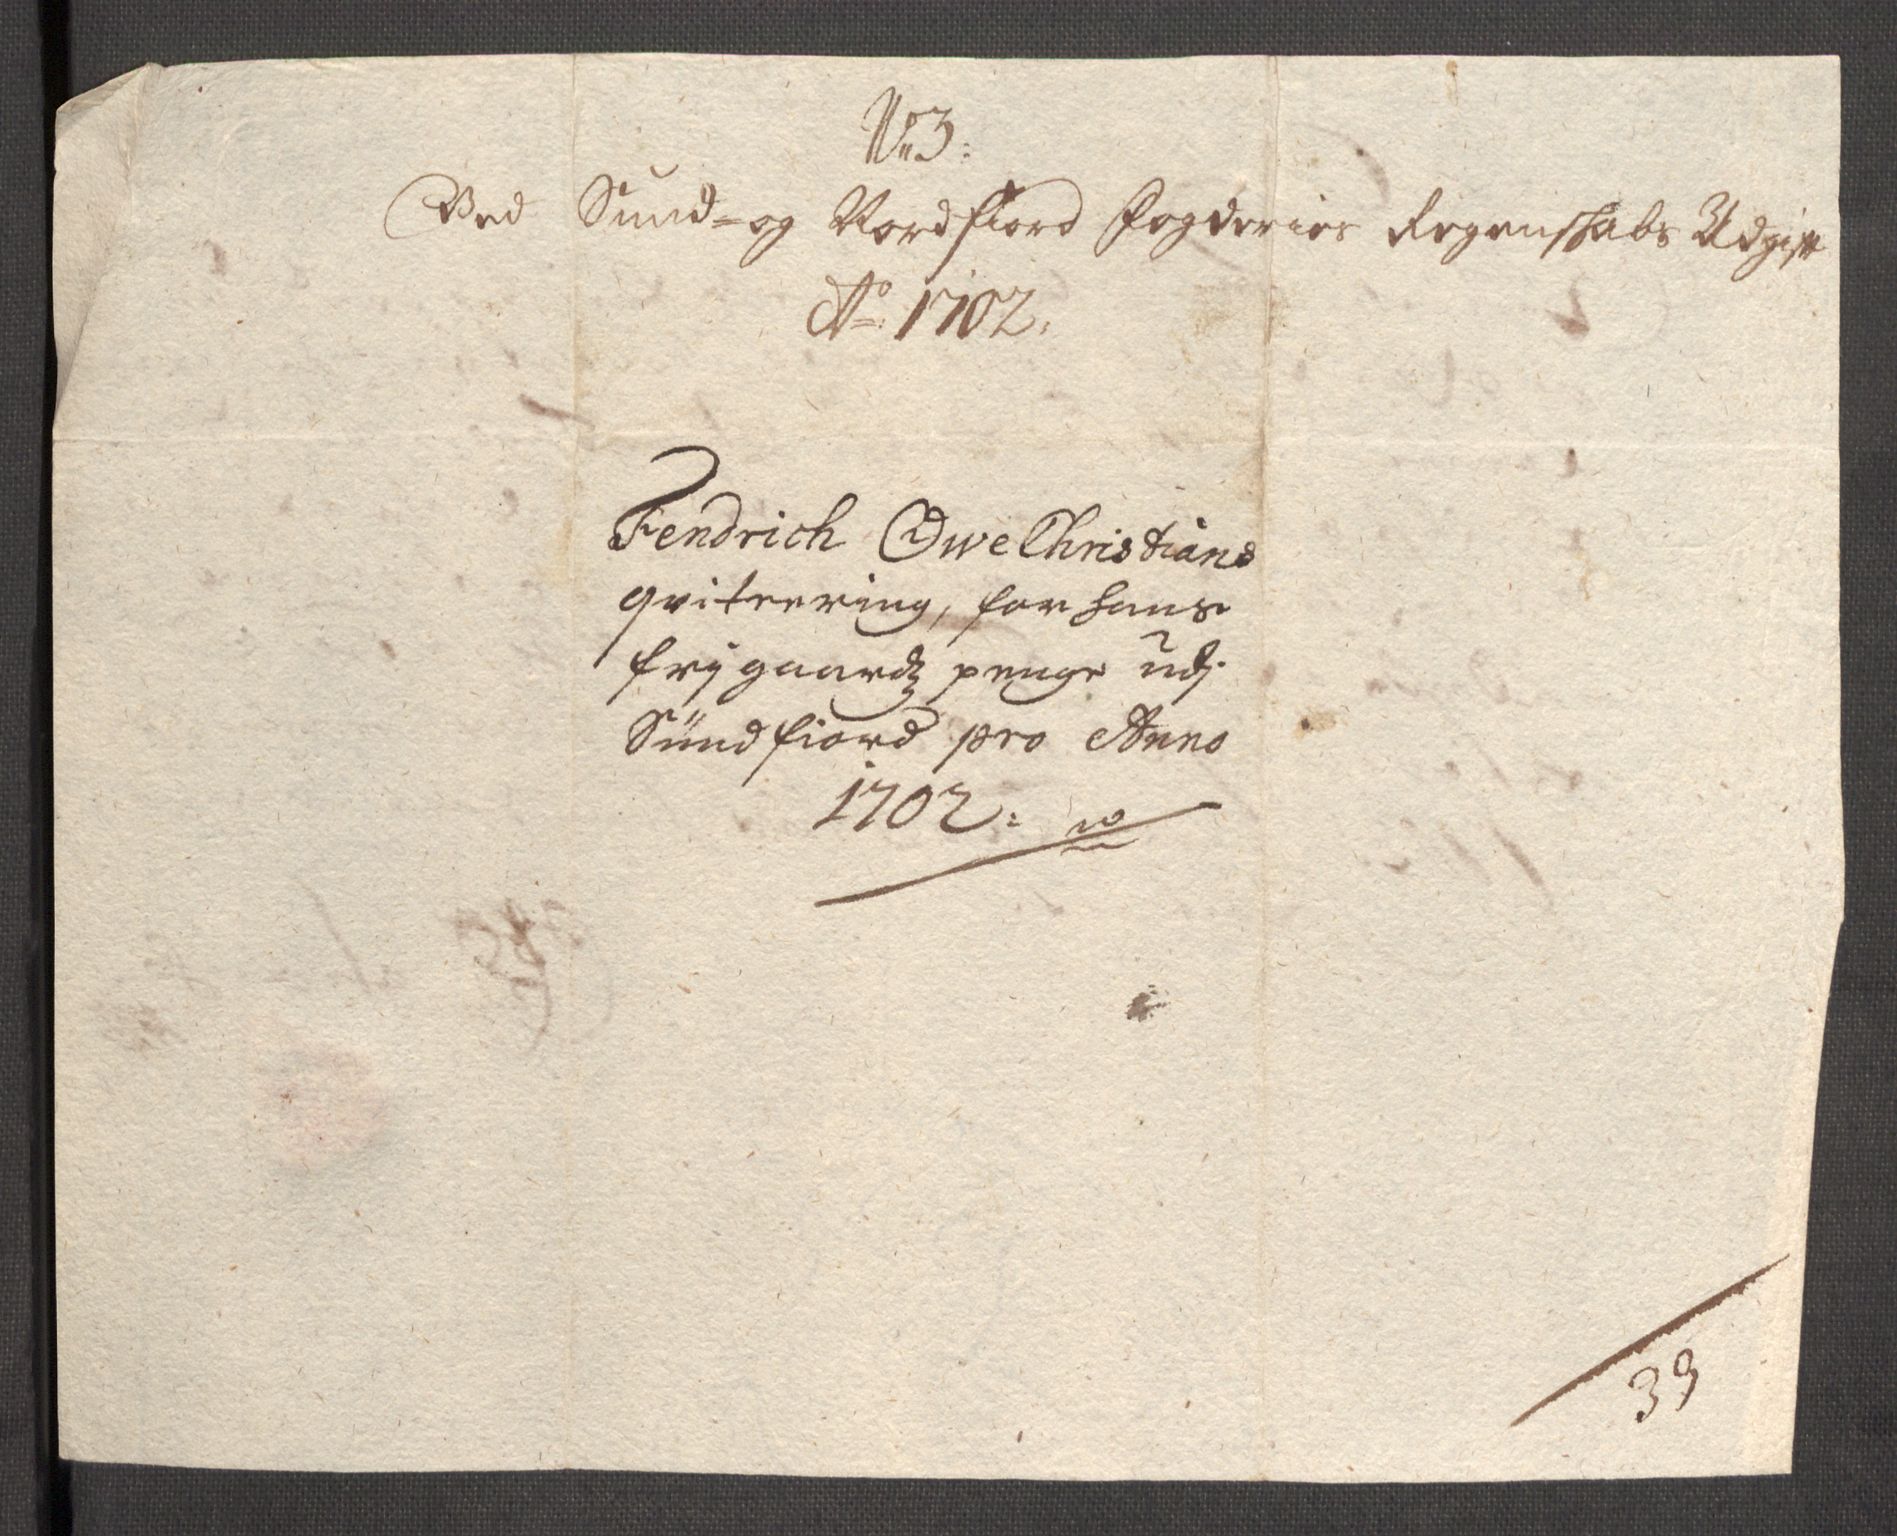 No 3:
Ved Sund- og Nordfiord Fogderies Regenskabs Udgift
Ao: 1702.
Fendrich Owe Christians
qvitering, for hans
frj gaardz penge udj
Sündfiord pro Anno
1702:
39